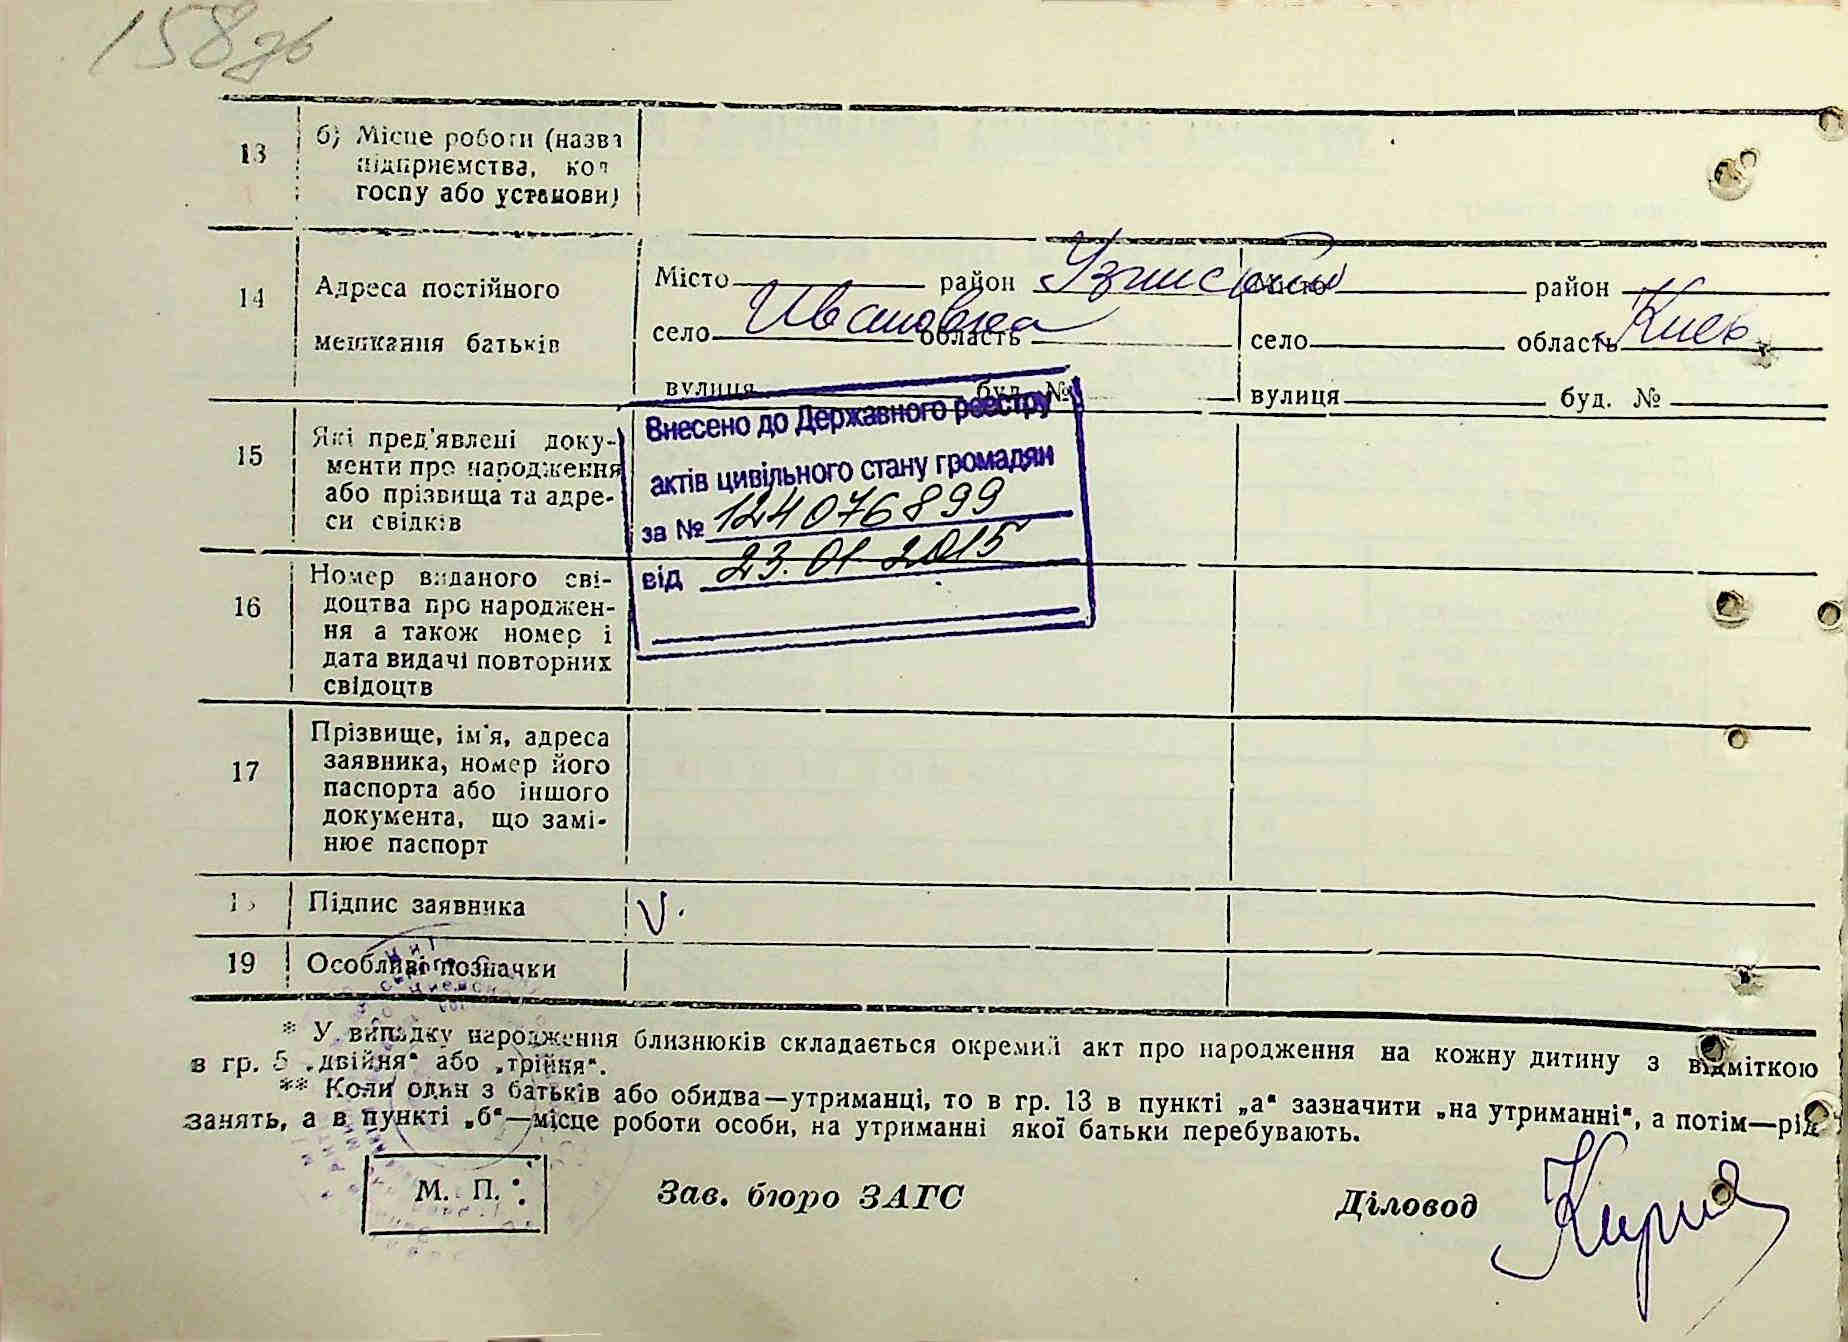 158зв
13 б) Місце роботи (назва
підприємства, кол
госпу або установи)
14 Адреса постійного
мешкання батьків
Місто район Місто район
село Ивановка область село область Киев
вулиця буд. № вулиця буд. №
15 Які пред'явлені доку-
менти про народження
або прізвища та адре-
си свідків
Внесено до Державного реєстру
актів цивільного стану громадян
за № 124076899
від 23.01.2015
16 Номер виданого сві-
доцтва про народжен-
ня а також номер і
дата видачі повторних
свідоцтв
17 Прізвище, ім'я, адреса
заявника, номер його
паспорта або іншого
документа, що замі-
нює паспорт
18 Підпис заявника V.
19 Особливі позначки
* У випадку народження близнюків складається окремий акт про народження на кожну дитину з відміткою
в гр. 5 „двійня“ або „трійня“.
** Коли один з батьків або обидва—утриманці, то в гр. 13 в пункті „а“ зазначити „на утриманні“, а потім—рід
занять, а в пункті „б“—місце роботи особи, на утриманні якої батьки перебувають.
М. П. Зав. бюро ЗАГС Діловод